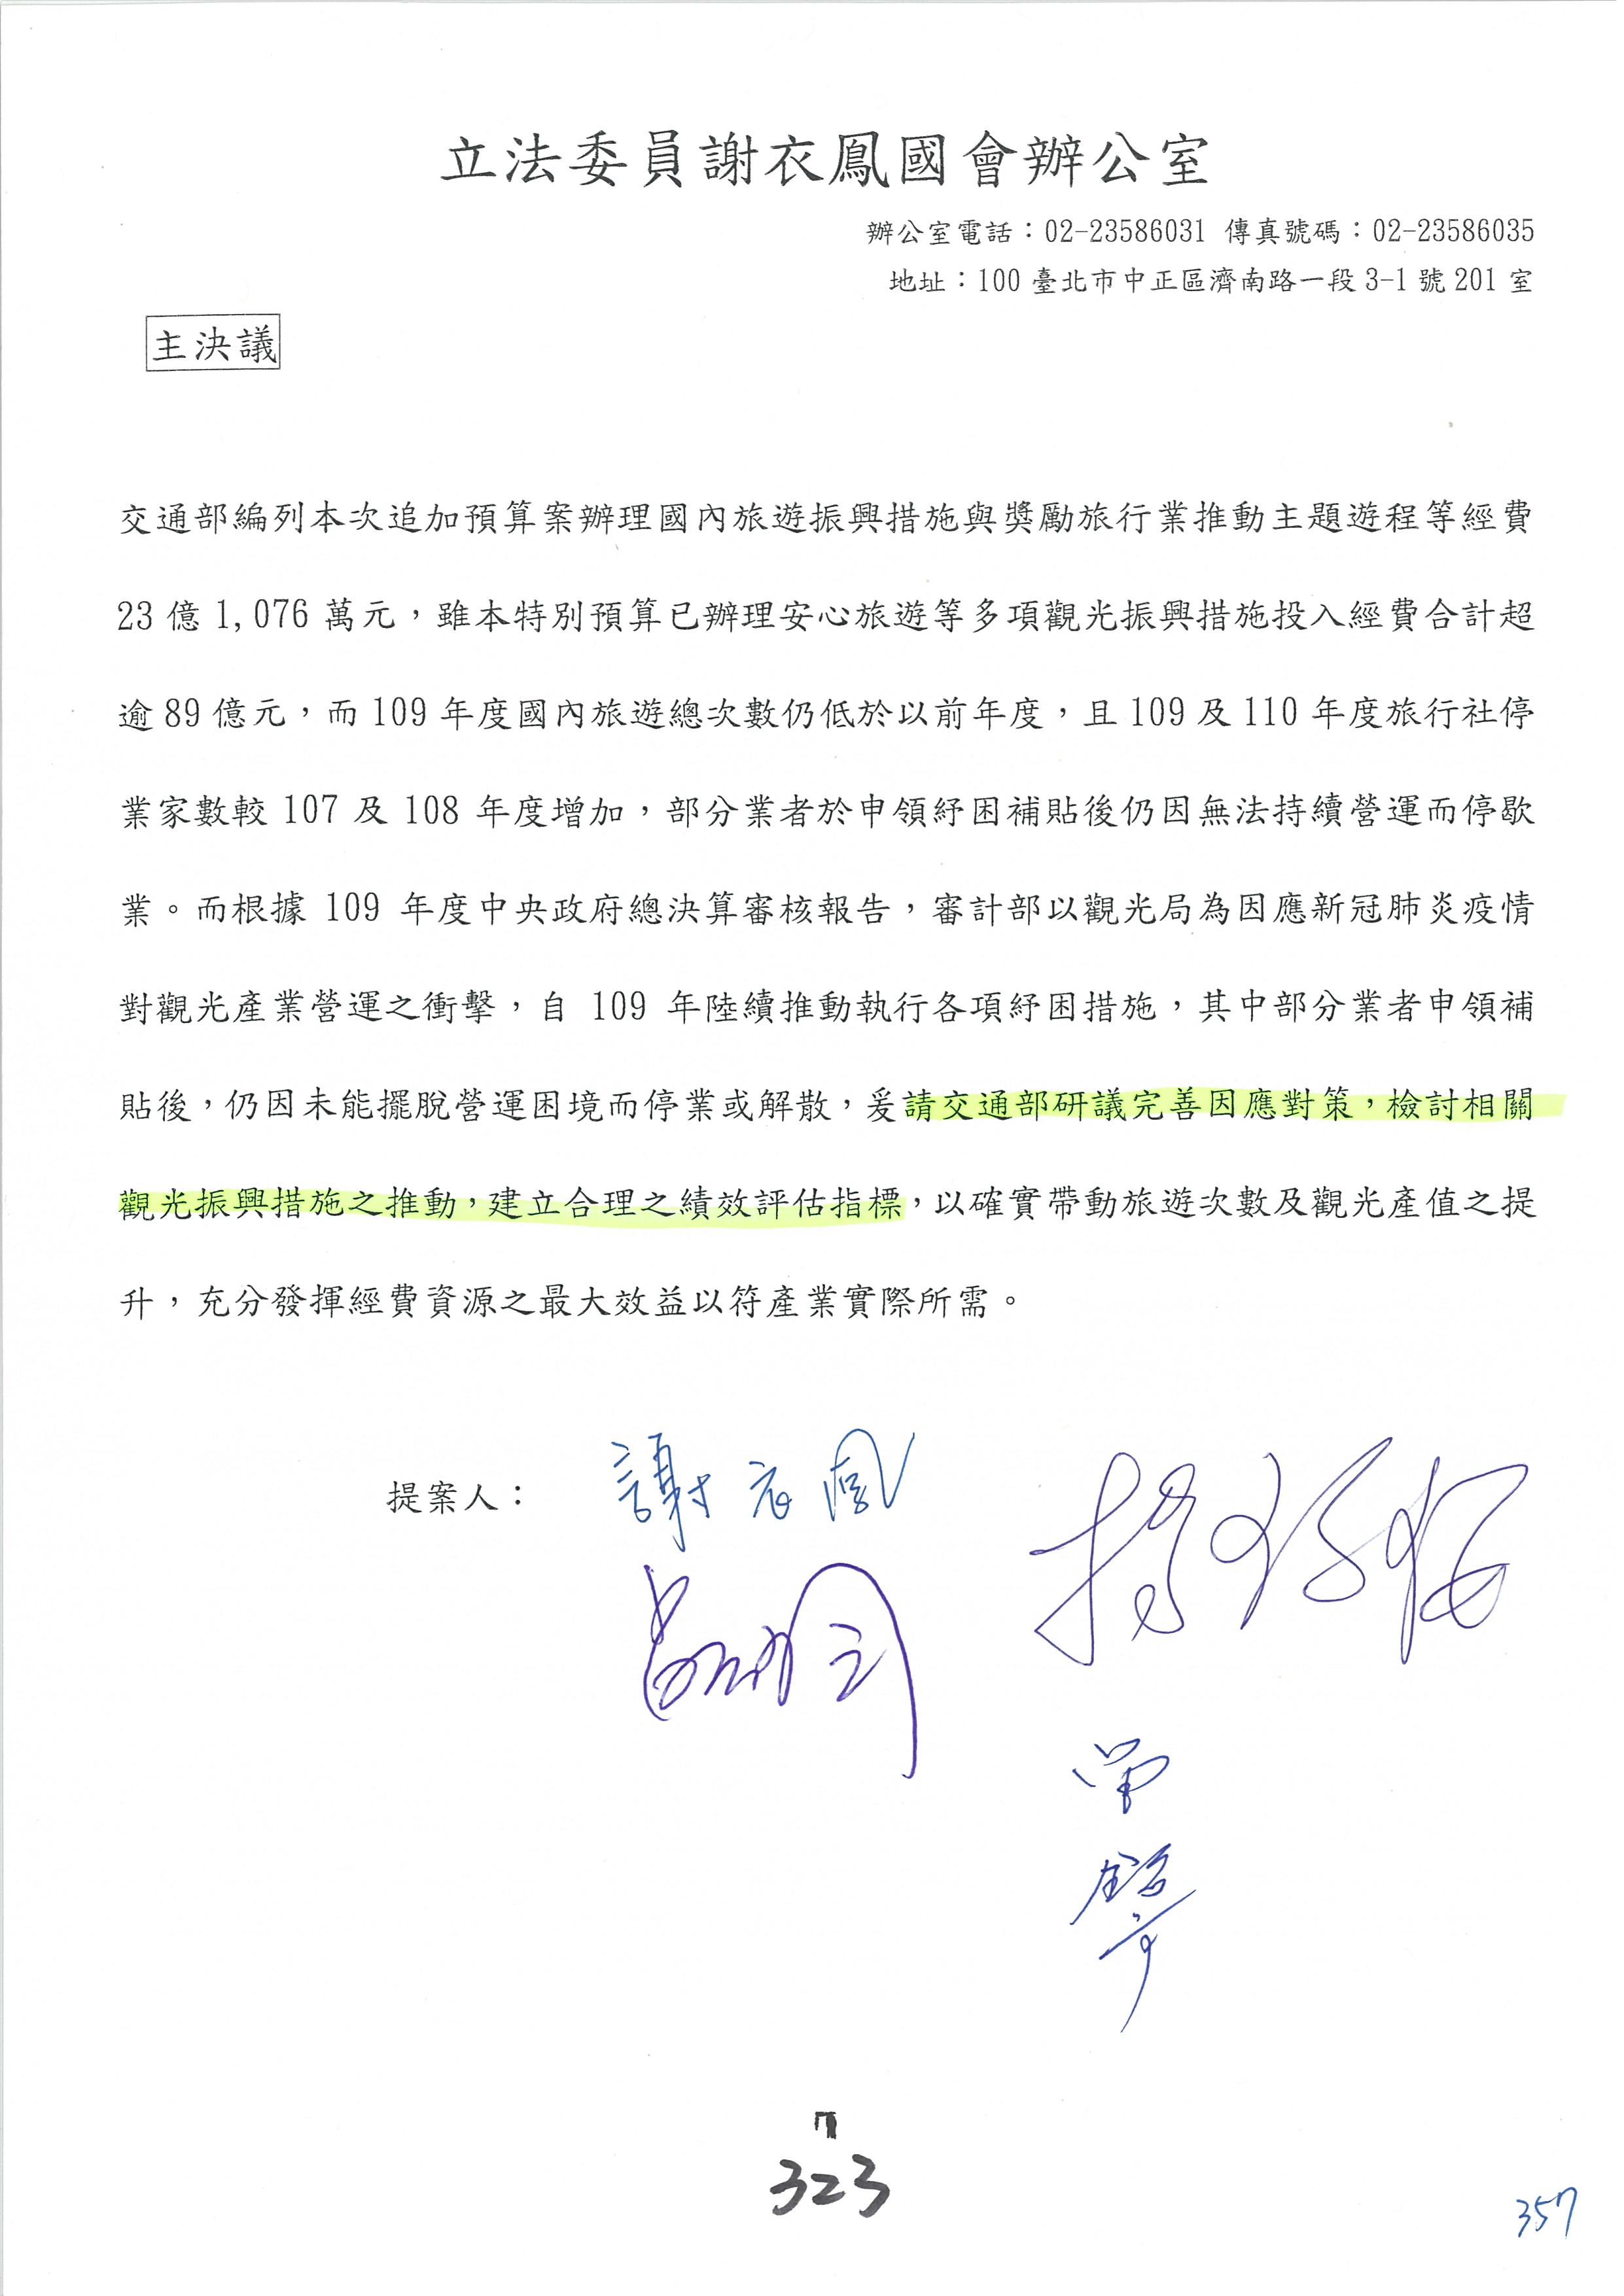 立法委員謝衣鳳國會辦公室
辦公室電話：02-23586031 傳真號碼：02-23586035
地址：100 臺北市中正區濟南路一段 3-1 號 201 室
主決議
交通部編列本次追加預算案辦理國內旅遊振興措施與獎勵旅行業推動主題遊程等經費
23 億 1,076 萬元，雖本特別預算已辦理安心旅遊等多項觀光振興措施投入經費合計超
逾 89 億元，而 109 年度國內旅遊總次數仍低於以前年度，且 109 及 110 年度旅行社停
業家數較 107 及 108 年度增加，部分業者於申領紓困補貼後仍因無法持續營運而停歇
業。而根據 109 年度中央政府總決算審核報告，審計部以觀光局為因應新冠肺炎疫情
對觀光產業營運之衝擊，自 109 年陸續推動執行各項紓困措施，其中部分業者申領補
貼後，仍因未能擺脫營運困境而停業或解散，爰請交通部研議完善因應對策，檢討相關
觀光振興措施之推動，建立合理之績效評估指標，以確實帶動旅遊次數及觀光產值之提
升，充分發揮經費資源之最大效益以符產業實際所需。
提案人：謝衣鳳
323
357